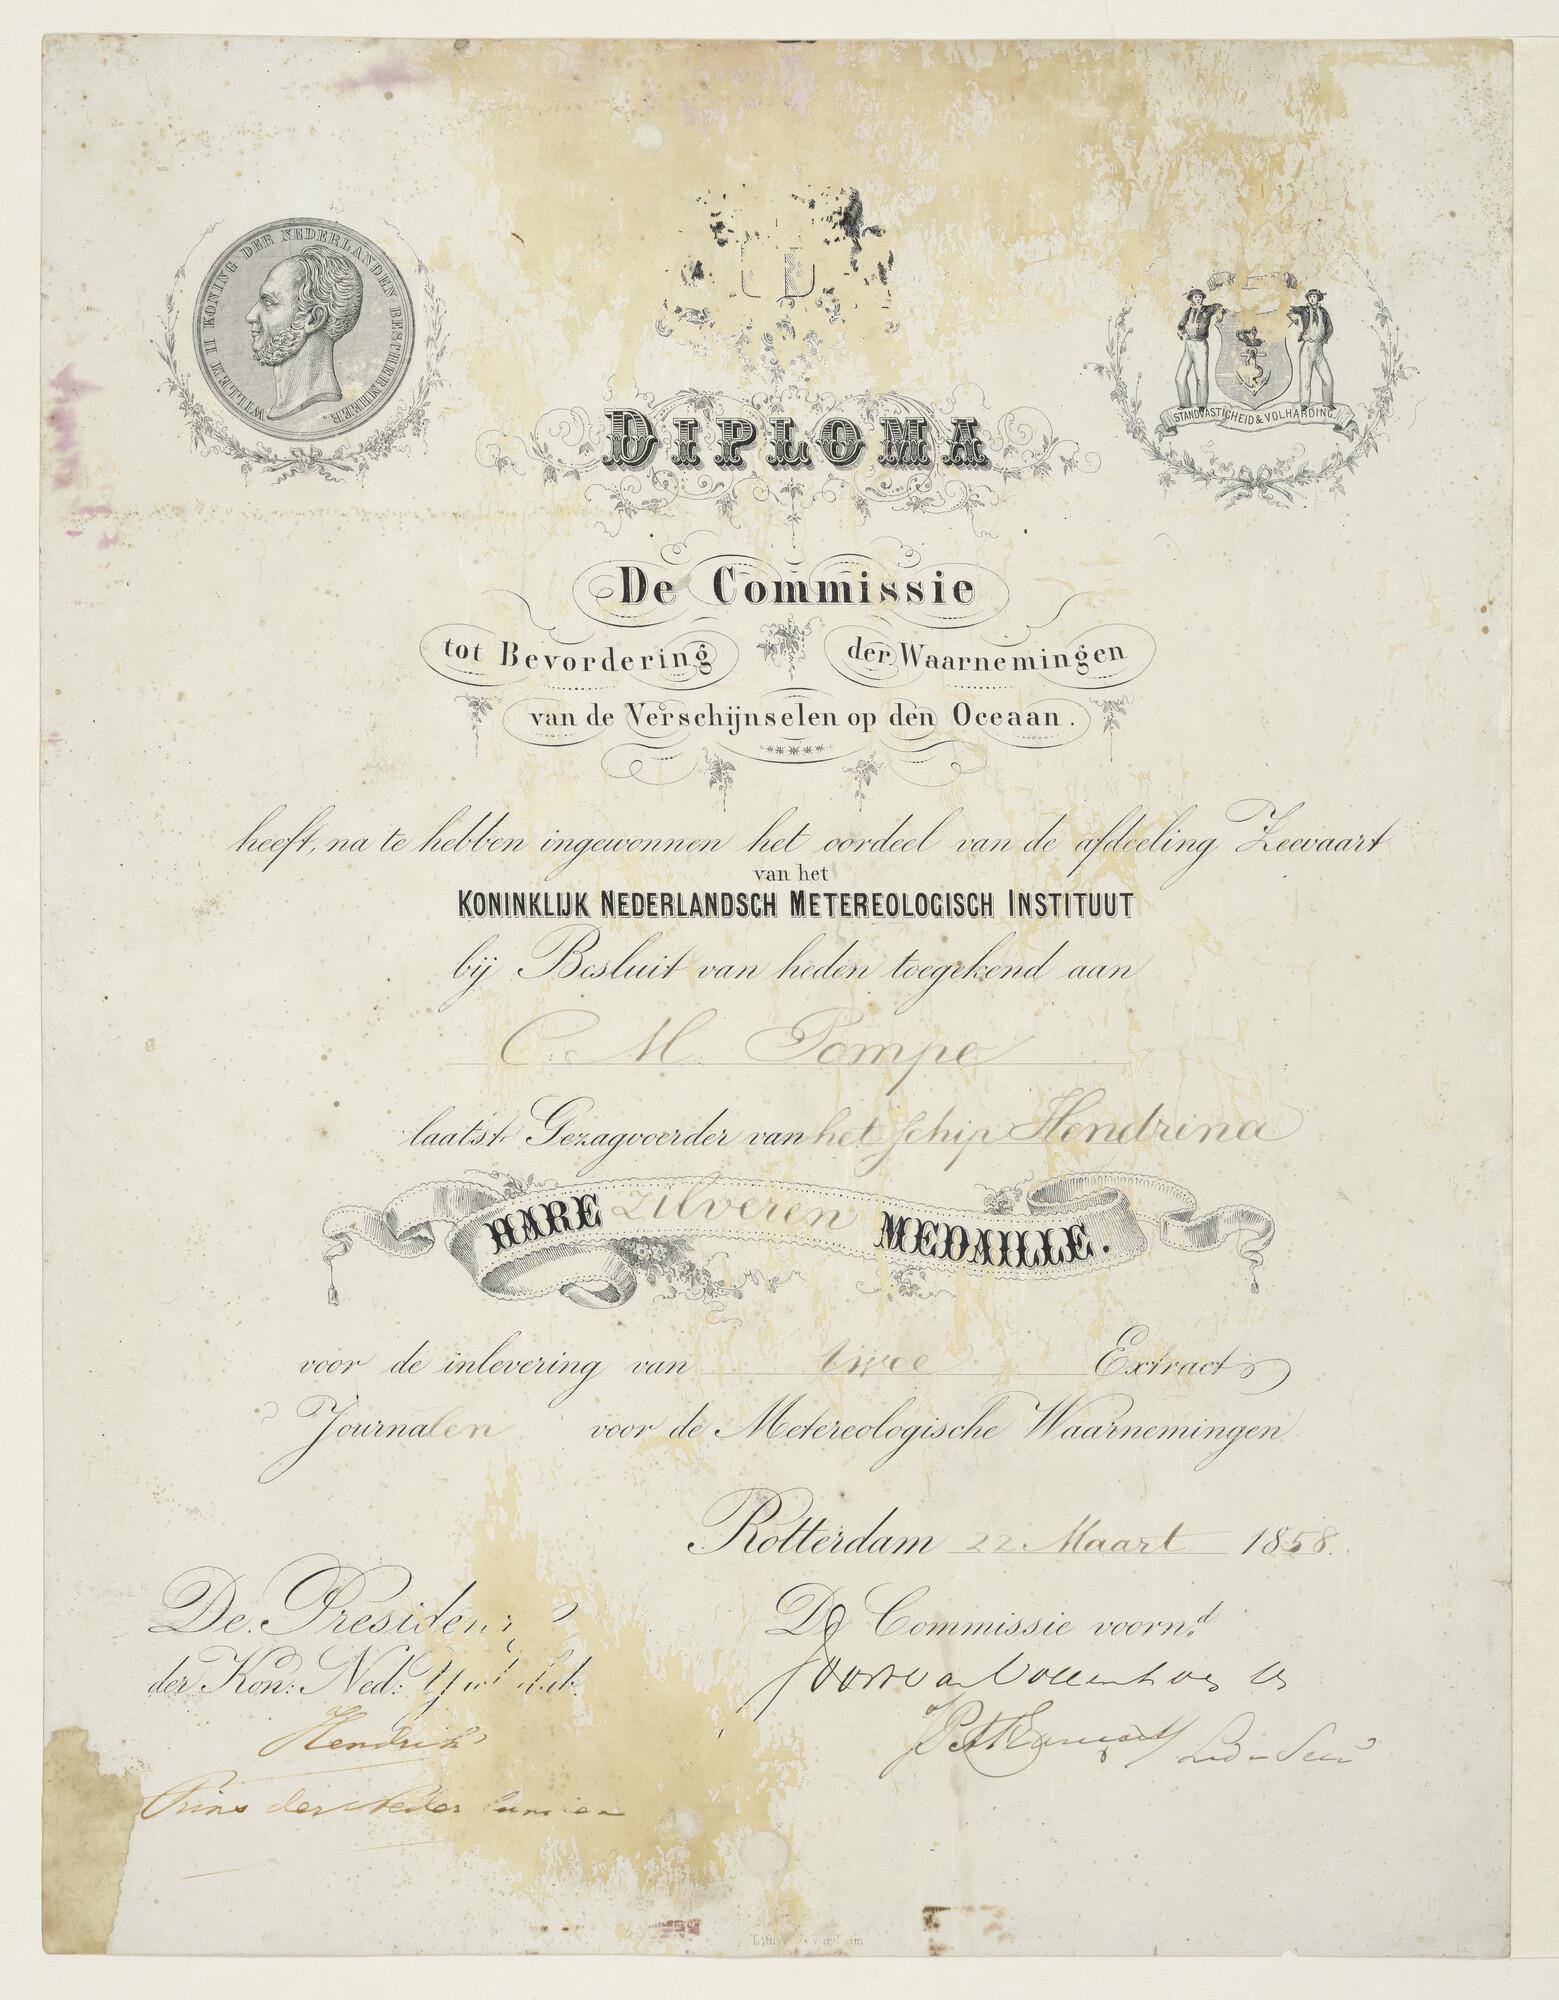 WILLEM II KONING DER NEDERLANDEN BESCHERMHEER.
STANDVASTIGHEID & VOLHARDING.
DIPLOMA
De Commissie
tot Bevordering der Waarnemingen
van de Verschijnselen op den Oceaan.
heeft, na te hebben ingewonnen het oordeel van de afdeeling Zeevaart
van het
KONINKLIJK NEDERLANDSCH METEREOLOGISCH INSTITUUT
bij Besluit van heden toegekend aan
C. M. Pompe
laatst Gezagvoerder van het schip Hendrina
HARE zilveren MEDAILLE.
voor de inlevering van twee Extract
Journalen voor de Metereologische Waarnemingen
Rotterdam 22 Maart 1858.
De President
der Kon: Ned:
De Commissie voornd
Hendrik
Prins der Nederlanden